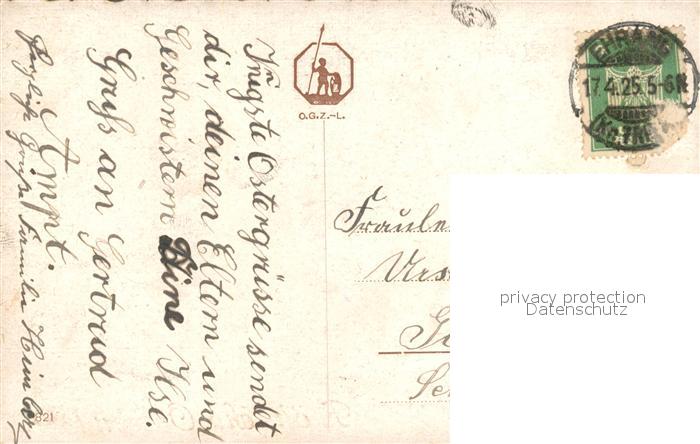 Innigste Ostergrüsse sendet
dir, deinen Eltern und
Geschwistern Deine Ilse.
Gruß an Gertrud
Herzliche Grüße Familie
O.G.Z.-L.
EHRANG
17.4.25.5-6N
Fräule
privacy protection
Datenschutz
821